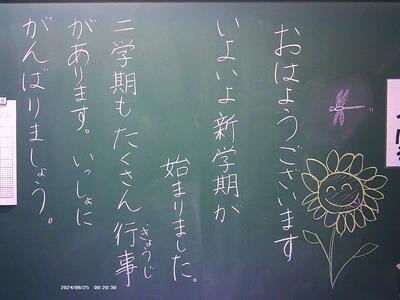 おはようございます
いよいよ新学期が
始まりました。
二学期もたくさん行事
ぎょうじ
があります。いっしょに
がんばりましょう。
2024/06/25 00:20:30